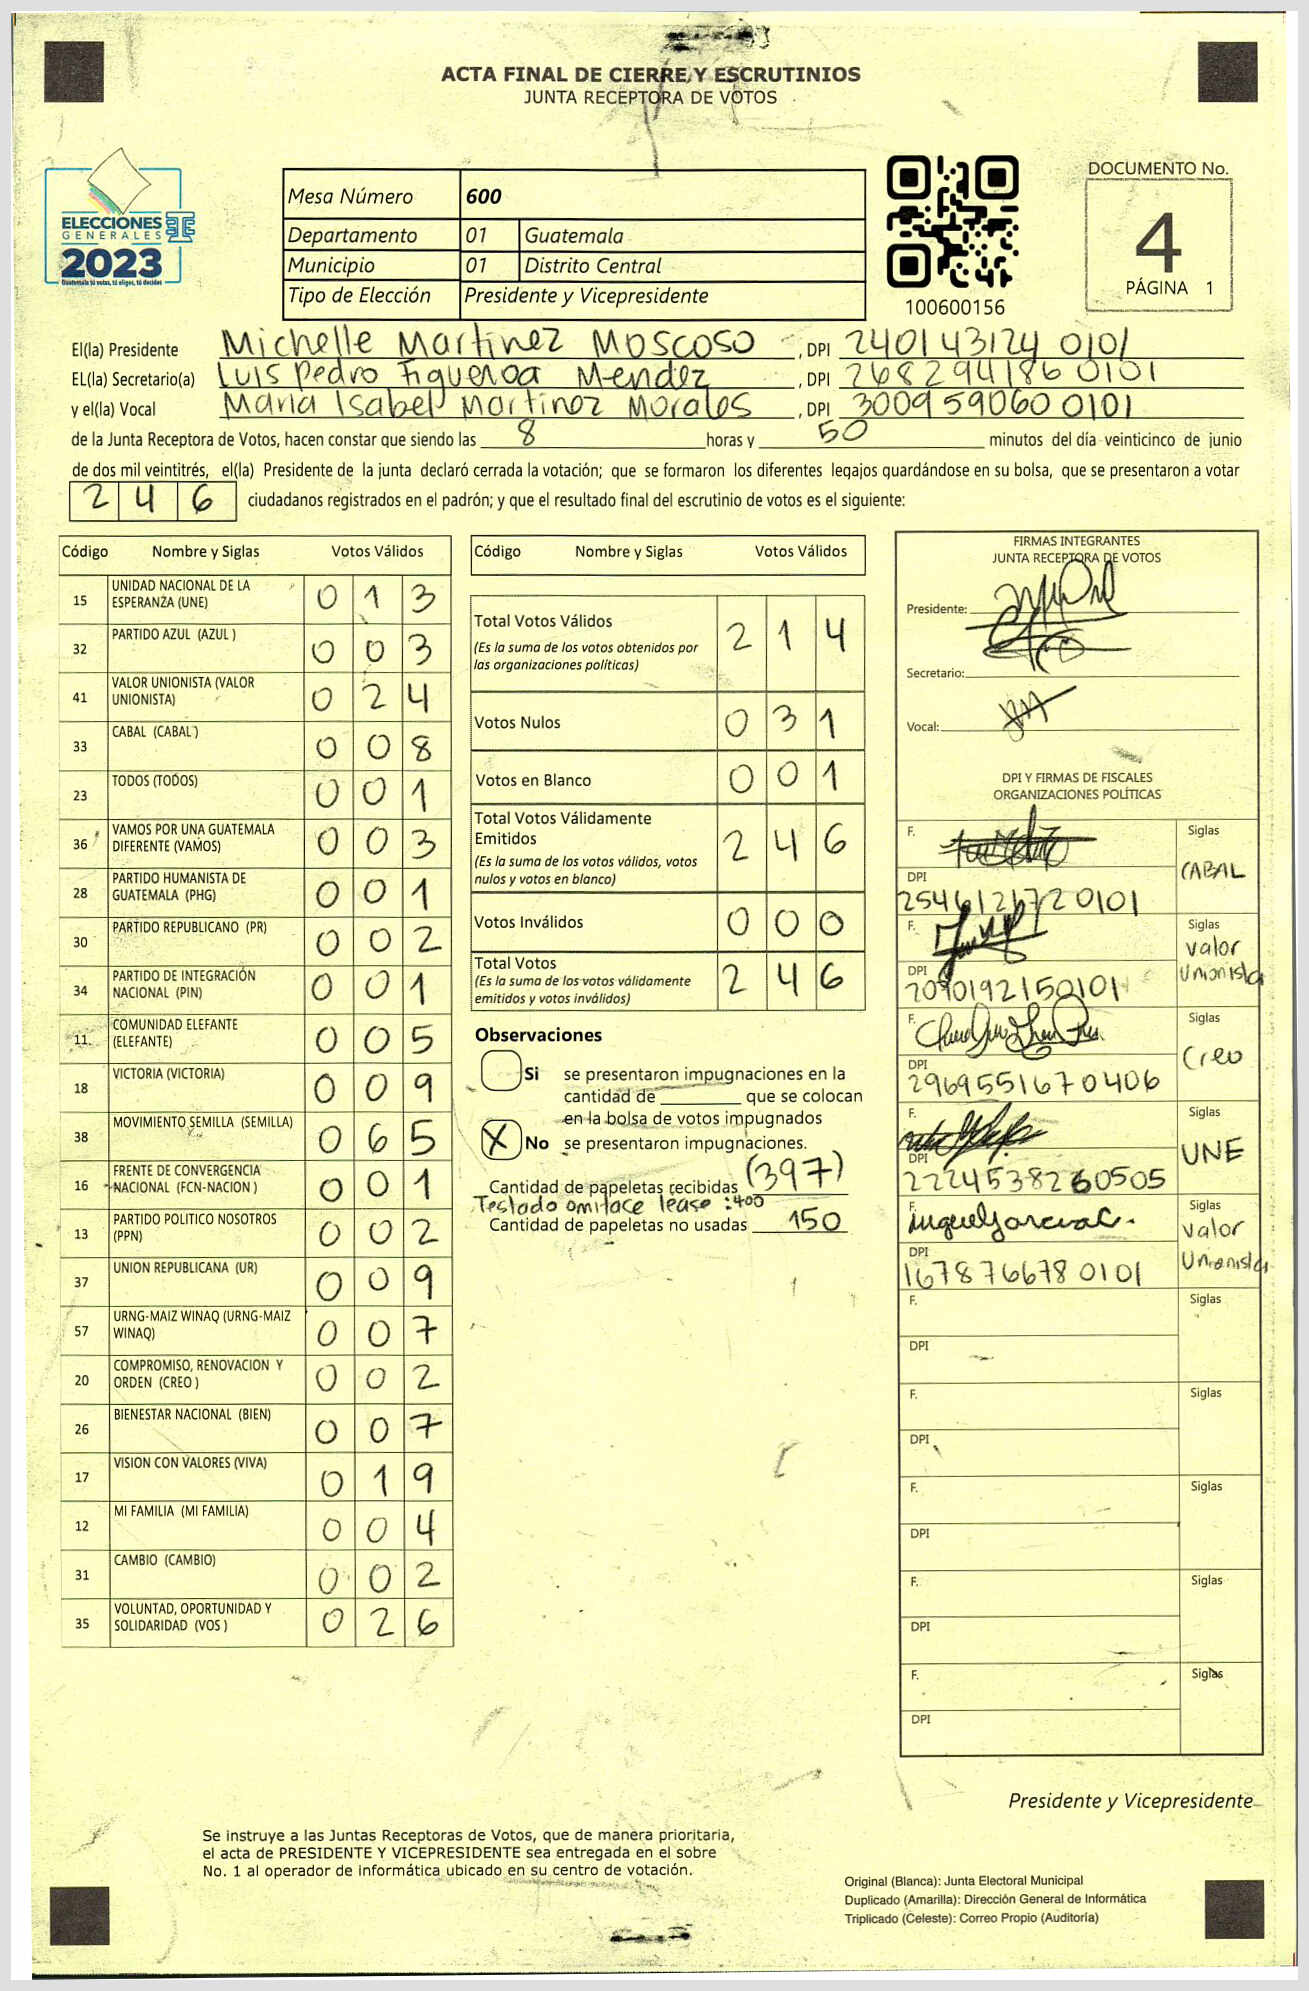 ACTA FINAL DE CIERRE Y ESCRUTINIOS
JUNTA RECEPTORA DE VOTOS
ELECCIONES
GENERALES
2023
Guatemala tú votas, tú eliges, tú decides
TSE
Mesa Número 600
Departamento 01 Guatemala
Municipio 01 Distrito Central
Tipo de Elección Presidente y Vicepresidente
100600156
DOCUMENTO No.
4
PÁGINA 1
El(la) Presidente Michelle Martinez Moscoso, DPI 240143124 0101
EL(la) Secretario(a) Luis Pedro Figueroa Mendez, DPI 268294186 0101
y el(la) Vocal Maria Isabel Martinez Morales, DPI 300959060 0101
de la Junta Receptora de Votos, hacen constar que siendo las 8 horas y 50 minutos del día veinticinco de junio
de dos mil veintitrés, el(la) Presidente de la junta declaró cerrada la votación; que se formaron los diferentes legajos guardándose en su bolsa, que se presentaron a votar
246 ciudadanos registrados en el padrón; y que el resultado final del escrutinio de votos es el siguiente:
Código Nombre y Siglas Votos Válidos
15 UNIDAD NACIONAL DE LA ESPERANZA (UNE) 013
32 PARTIDO AZUL (AZUL ) 003
41 VALOR UNIONISTA (VALOR UNIONISTA) 024
33 CABAL (CABAL ) 008
23 TODOS (TODOS) 001
36 VAMOS POR UNA GUATEMALA DIFERENTE (VAMOS) 003
28 PARTIDO HUMANISTA DE GUATEMALA (PHG) 001
30 PARTIDO REPUBLICANO (PR) 002
34 PARTIDO DE INTEGRACIÓN NACIONAL (PIN) 001
11 COMUNIDAD ELEFANTE (ELEFANTE) 005
18 VICTORIA (VICTORIA) 009
38 MOVIMIENTO SEMILLA (SEMILLA) 065
16 FRENTE DE CONVERGENCIA NACIONAL (FCN-NACION ) 001
13 PARTIDO POLITICO NOSOTROS (PPN) 002
37 UNION REPUBLICANA (UR) 009
57 URNG-MAIZ WINAQ (URNG-MAIZ WINAQ) 007
20 COMPROMISO, RENOVACION Y ORDEN (CREO ) 002
26 BIENESTAR NACIONAL (BIEN) 007
17 VISION CON VALORES (VIVA) 019
12 MI FAMILIA (MI FAMILIA) 004
31 CAMBIO (CAMBIO) 002
35 VOLUNTAD, OPORTUNIDAD Y SOLIDARIDAD (VOS ) 026
Código Nombre y Siglas Votos Válidos
Total Votos Válidos 214
(Es la suma de los votos obtenidos por
las organizaciones políticas)
Votos Nulos 031
Votos en Blanco 001
Total Votos Válidamente
Emitidos 246
(Es la suma de los votos válidos, votos
nulos y votos en blanco)
Votos Inválidos 000
Total Votos 246
(Es la suma de los votos válidamente
emitidos y votos inválidos)
Observaciones
Si se presentaron impugnaciones en la
cantidad de que se colocan
en la bolsa de votos impugnados
X No se presentaron impugnaciones.
Cantidad de papeletas recibidas (397)
Testado omitace lease :400
Cantidad de papeletas no usadas 150
FIRMAS INTEGRANTES
JUNTA RECEPTORA DE VOTOS
Presidente:
Secretario:
Vocal:
DPI Y FIRMAS DE FISCALES
ORGANIZACIONES POLÍTICAS
F. Siglas
CABAL
DPI
2546121720101
F. Siglas
Valor
Unionista
DPI
2090192150101
F. Siglas
Creo
DPI
2969551670406
F. Siglas
UNE
DPI
2224538260505
F. Siglas
Valor
Unionista
DPI
1678766780101
F. Siglas
DPI
F. Siglas
DPI
F. Siglas
DPI
F. Siglas
DPI
F. Siglas
DPI
Presidente y Vicepresidente
Se instruye a las Juntas Receptoras de Votos, que de manera prioritaria,
el acta de PRESIDENTE Y VICEPRESIDENTE sea entregada en el sobre
No. 1 al operador de informática ubicado en su centro de votación.
Original (Blanca): Junta Electoral Municipal
Duplicado (Amarilla): Dirección General de Informática
Triplicado (Celeste): Correo Propio (Auditoría)